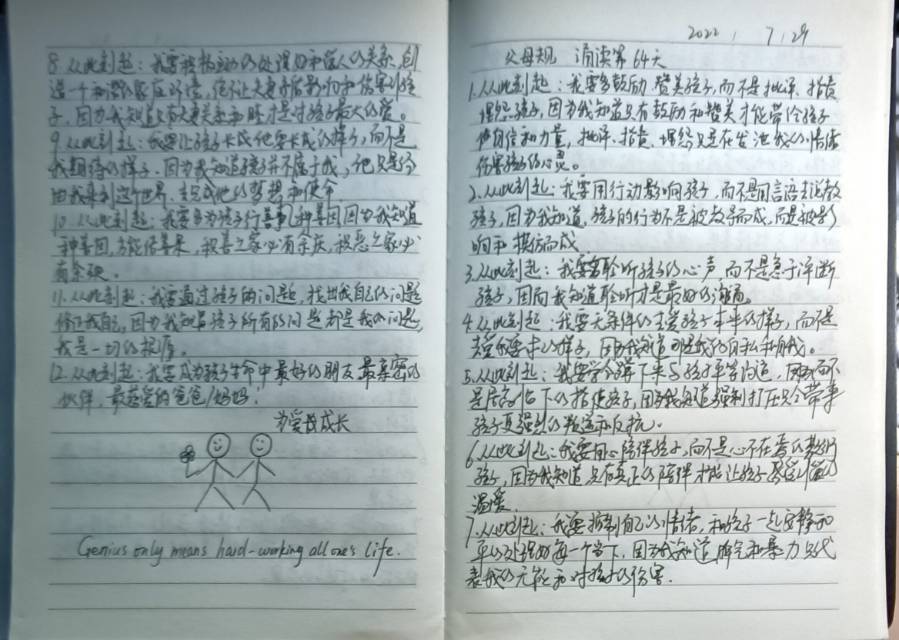 2022, 7, 29
父母规 诵读第64天
1.从此刻起：我要多鼓励、赞美孩子，而不是批评、指责
埋怨孩子，因为我知道只有鼓励和赞美才能带给孩子
自信和力量，批评、指责、埋怨只是在发泄我的情绪
伤害孩子的心灵。
2.从此刻起：我要用行动影响孩子，而不是用言语去说教
孩子，因为我知道，孩子的行为不是被教导而成，而是被影
响和模仿而成
3.从此刻起：我要多聆听孩子的心声，而不是急于评断
孩子，因而我知道聆听才是最好的沟通。
4.从此刻起：我要无条件的去爱孩子本来的样子，而不是
去爱我要求的样子，因为我知道那是我的自私和自我。
5.从此刻起：我要学会蹲下来与孩子平等沟通，而不
是居高临下的指使孩子，因为我知道强制打压只会带来
孩子更强烈的叛逆和反抗。
6.从此刻起：我要用心陪伴孩子，而不是心不在焉的敷衍
孩子，因为我知道，只有真正的陪伴才能让孩子感受到爱的
温暖。
7.从此刻起：我要控制自己的情绪，和孩子一起安静和
平的处理好每一个当下，因为我知道脾气和暴力只代
表我的无能和对孩子的伤害．
8.从此刻起：我要积极主动的处理好和家人的关系，创
造一个和谐的家庭环境，绝不让夫妻矛盾影响和伤害到孩
子，因为我知道只有夫妻关系和睦才是对孩子最大的爱。
9.从此刻起：我要让孩子长成他要长成的样子，而不是
我期待的样子．因为我知道孩子并不属于我，他只是经
由我来到这个世界，去完成他的梦想和使命
10.从此刻起：我要多为孩子行善事、种善因因为我知道
种善因，方能结善果，积善之家必有余庆，积恶之家必
有余殃。
11.从此刻起：我要通过孩子的问题，找出我自己的问题
修正我自己，因为我知道孩子所有的问题都是我的问题，
我是一切的根源。
12.从此刻起：我要成为孩子生命中最好的朋友最亲密的
伙伴，最慈爱的爸爸/妈妈．
为爱成长
Genius only means hard-working all one's life.